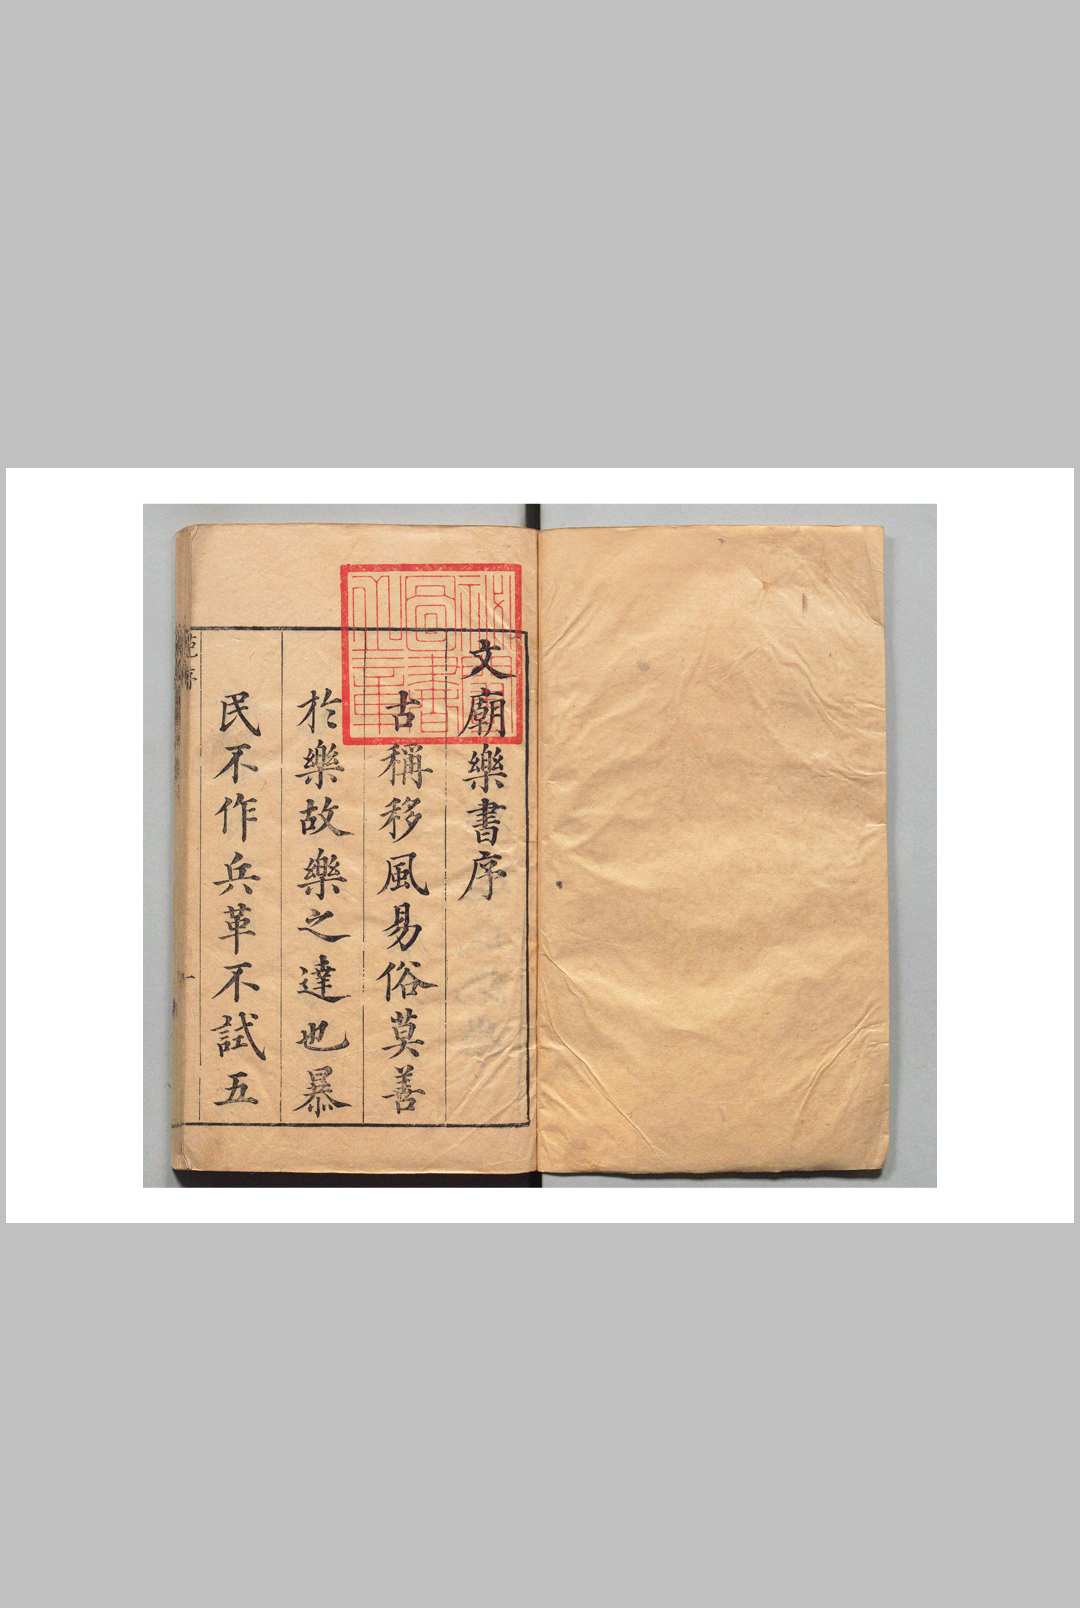 文廟樂書序
古稱移風易俗莫善
於樂故樂之達也暴
民不作兵革不試五